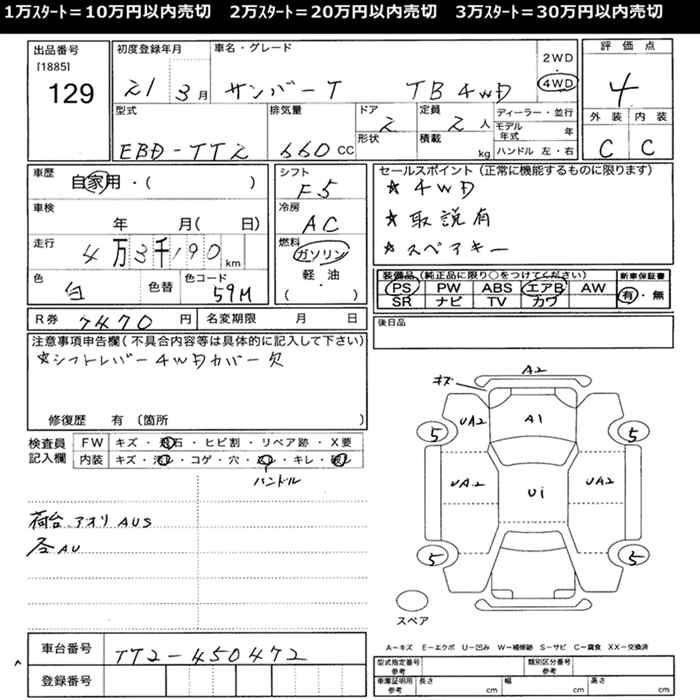 1万スタート=10万円以内売切 2万スタート=20万円以内売切 3万スタート=30万円以内売切
出品番号 初度登録年月 車名・グレード 評価点
[1885]
129 21 3月 サンバーT TB 4WD 2WD・4WD 4
型式 排気量 ドア 定員 ディーラー・並行 外装 内装
EBD-TT2 660CC 2 2人 モデル年式 年 C C
形状 積載 kg ハンドル 左・右
車歴 自家用・( ) シフト F5
車検 年 月( 日) 冷房 AC
走行 4万3千190km 燃料 ガソリン・軽・油 ( )
色 白 色替 色コード 59M
R券 7470円 名変期限 月 日
セールスポイント(正常に機能するものに限ります)
★4WD
★取説有
★スペアキー
装備品(純正品に限り○をつけてください) 新車保証書
PS PW ABS エアB AW 有・無
SR ナビ TV カワ
後日品
注意事項申告欄(不具合内容等は具体的に記入して下さい)
☆シフトレバー4WDカバー欠
修復歴 有 〔箇所 〕
検査員記入欄 FW キズ・飛石・ヒビ割・リペア跡・X要
内装 キズ・汚レ・コゲ・穴・スレ・キレ・破レ
ハンドル
荷台、アオリ AUS
各AU
キズ A2
UA2 A1
5 5
UA2 Ui UA2
5 5
スペア
A-キズ E-エクボ U-凹み W-補修跡 S-サビ C-腐食 XX-交換済
車台番号 TT2-450472
登録番号
型式指定番号 参考 類別区分番号 参考
車庫証明用 参考 長さ cm 幅 cm 高さ cm